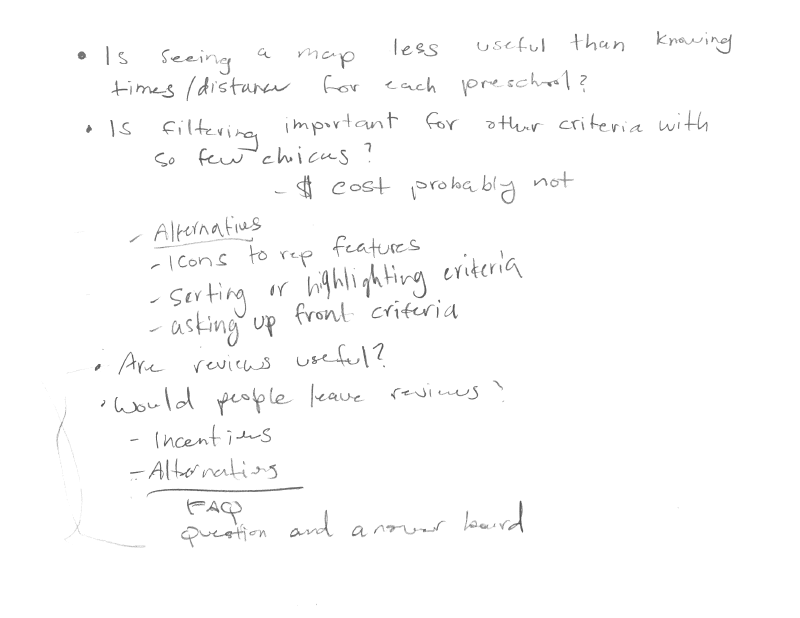 • Is seeing a map less useful than knowing
times/distance for each preschool?
• Is filtering important for other criteria with
so few choices?
- $ cost probably not
- Alternatives
- Icons to rep features
- Sorting or highlighting criteria
- asking up front criteria
• Are reviews useful?
• Would people leave reviews?
- Incentives
- Alternatives
FAQ
question and answer board